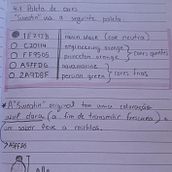 4.1 Paleta de cores
"Sweatin" usa a seguinte paleta:
1F2123 | main black (cor neutra)
C20114 | engineering orange
FF9505 | princeton orange } cores quentes
A9FFDG | aquamarine
2A9D8F | persian green } cores frias
* A "Sweatin" original tem uma coloração
azul clara (a fim de transmitir frescura) e
um sabor leve a
A9FFDG